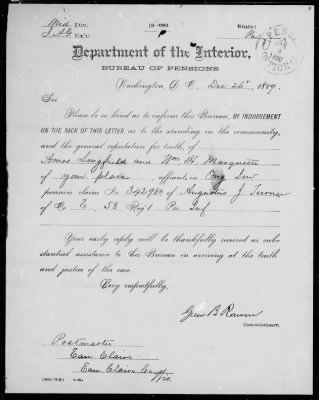 Mid Div.
[3-081]
State:
Ex'r.
Pa
Department of the Interior,
BUREAU OF PENSIONS
Washington, D. C., Dec 26", 1889.
Sir
Please be so kind as to inform this Bureau, BY INDORSEMENT
ON THE BACK OF THIS LETTER, as to the standing in the community,
and the general reputation for truth, of
Amos Longfield and Wm H. Marquette
of your place, affiants in Orig Inv
pension claim No. 342983 of Augustus J. Turner
of Co E, 58 Reg't Pa Inf
Your early reply will be thankfully received as sub-
stantial assistance to this Bureau in arriving at the truth
and justice of the case.
Very respectfully,
Green B Raum
Commissioner.
Postmaster
Eau Claire
Eau Claire County
Wis.